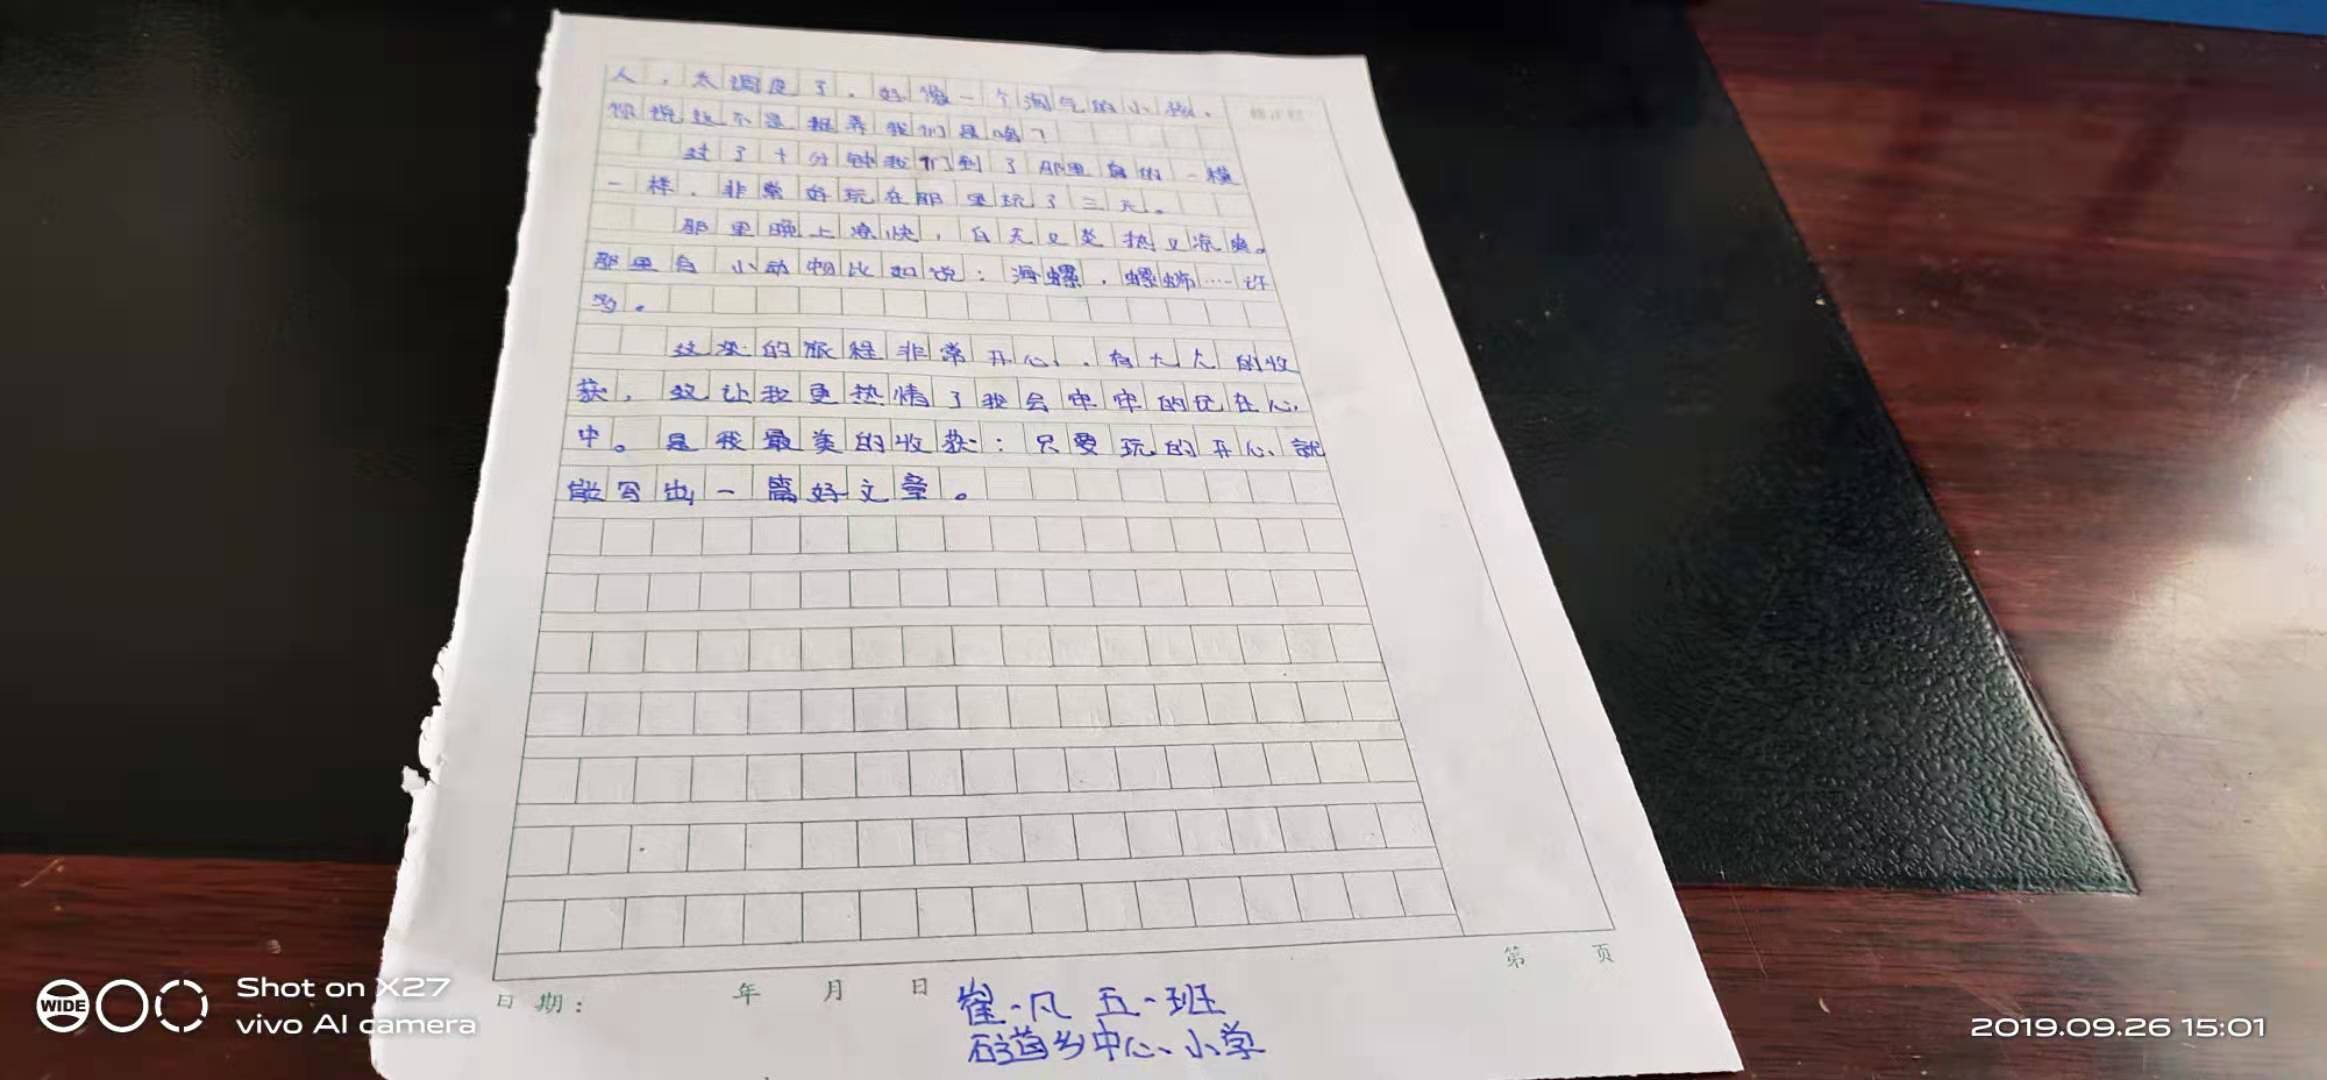 人，太调皮了，好像一个淘气的小孩，
你说这不是捉弄我们是啥？
过了十分钟我们到了那里真的一模
一样，非常好玩在那里玩了三天。
那里晚上凉快，白天又炎热又凉爽。
那里有小动物比如说：海螺，螺蛳……许
多。
这次的旅程非常开心，有大大的收
获，这让我更热情了我会牢牢的记在心
中。是我最美的收获：只要玩的开心就
能写出一篇好文章。
第 页
日期： 年 月 日
崔一凡 五一班
乡中心小学
WIDE
Shot on X27
vivo AI camera
2019.09.26 15:01